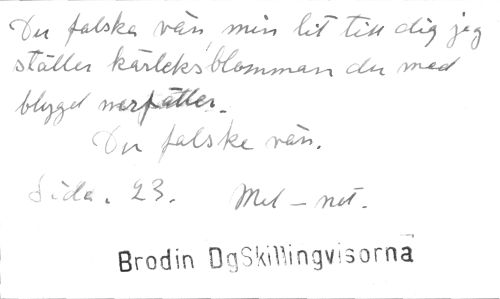 Du falska vän, min lit till dig jag
ställer kärleksblomman du med
blyged nerfäller.
Du falske vän.
Sida. 23. Mel - not.
Brodin DgSkillingvisorna